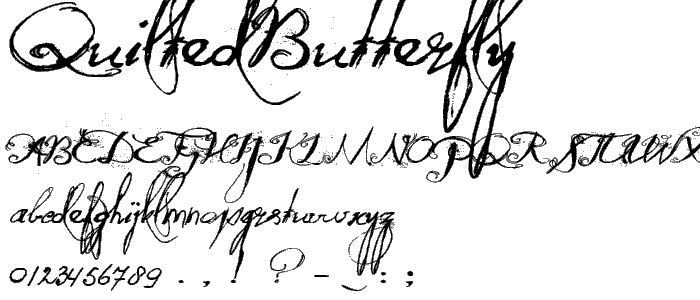 QuiltedButterfly
ABCDEFGHIJKLMNOPQRSTUVWX
abcdefghijklmnopqrstuvwxyz
0123456789 . , ! ? - _ : ;